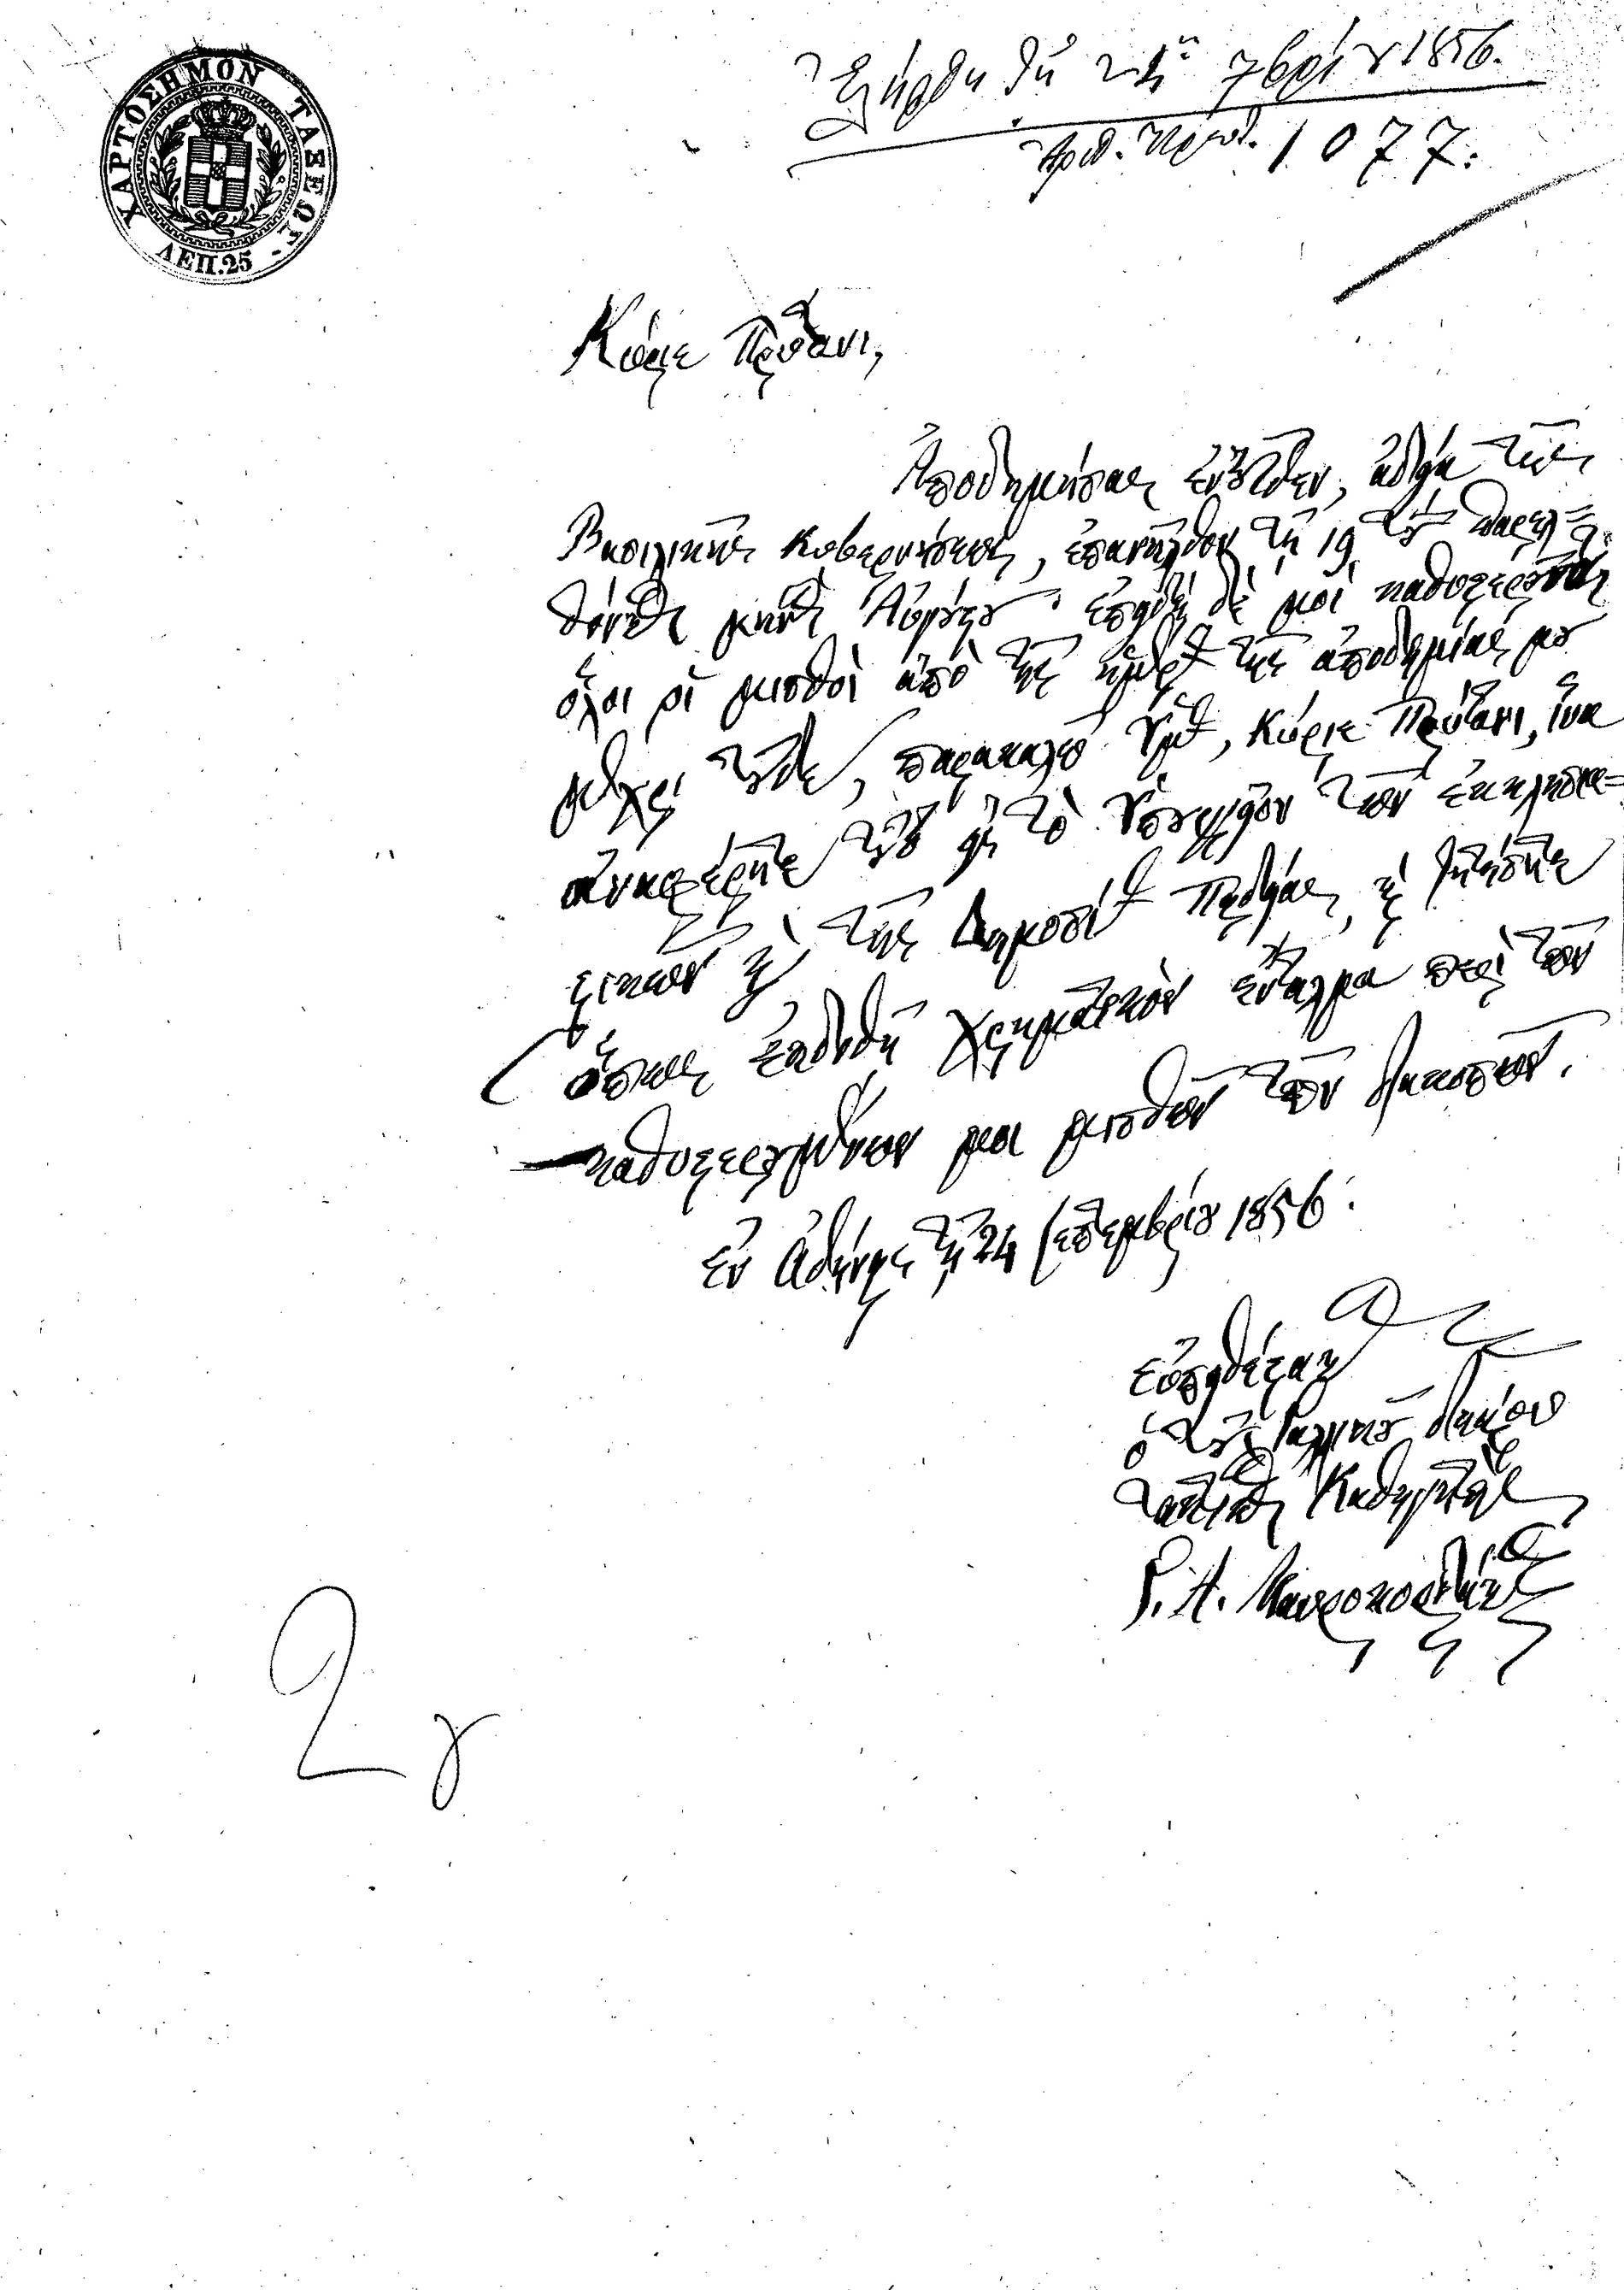 ΧΑΡΤΟΣΗΜΟΝ ΤΑΞΕΩΣ
ΛΕΠ. 25
Ἐλήφθη τῇ 7βρίου 1856.
Ἀριθ. Πρωτ. 1077.
Κύριε Πρύτανι,
Ἀποδημήσας ἐντεῦθεν, ἀδείᾳ τῆς
Βασιλικῆς Κυβερνήσεως, ἐπανῆλθον τῇ 19 τοῦ παρελ=
θόντος μηνὸς Αὐγούστου· ἐπειδὴ δέ μοι καθυστεροῦνται
ὅλοι οἱ μισθοὶ ἀπὸ τῆς ἡμέρας τῆς ἀποδημίας μου
μέχρι τοῦδε, παρακαλῶ ὑμᾶς, Κύριε Πρύτανι, ἵνα
ἀναφέρητε τοῦτο εἰς τὸ Ὑπουργεῖον τῶν ἐκκλησια=
στικῶν καὶ τῆς Δημοσίας Παιδείας, καὶ ζητήσητε
ὅπως ἐκδοθῇ χρηματικὸν ἔνταλμα περὶ τῶν
καθυστερουμένων μοι μισθῶν τῶν
ἐν Ἀθήναις τῇ 24 Σεπτεμβρίου 1856.
εὐπειθέστατος
ὁ τοῦ Γαλλικοῦ δικαίου
τακτικὸς Καθηγητὴς
Γ. Α. Μαυροκορδάτος
2γ